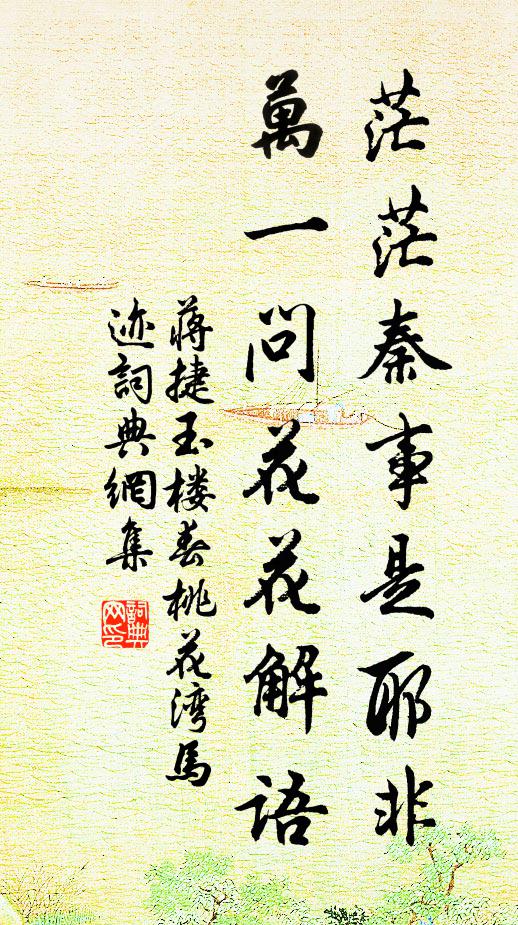 茫茫秦事是耶非
萬一問花花解語
蔣捷玉楼春桃花湾馬
迹詞典網集
詞典
网印